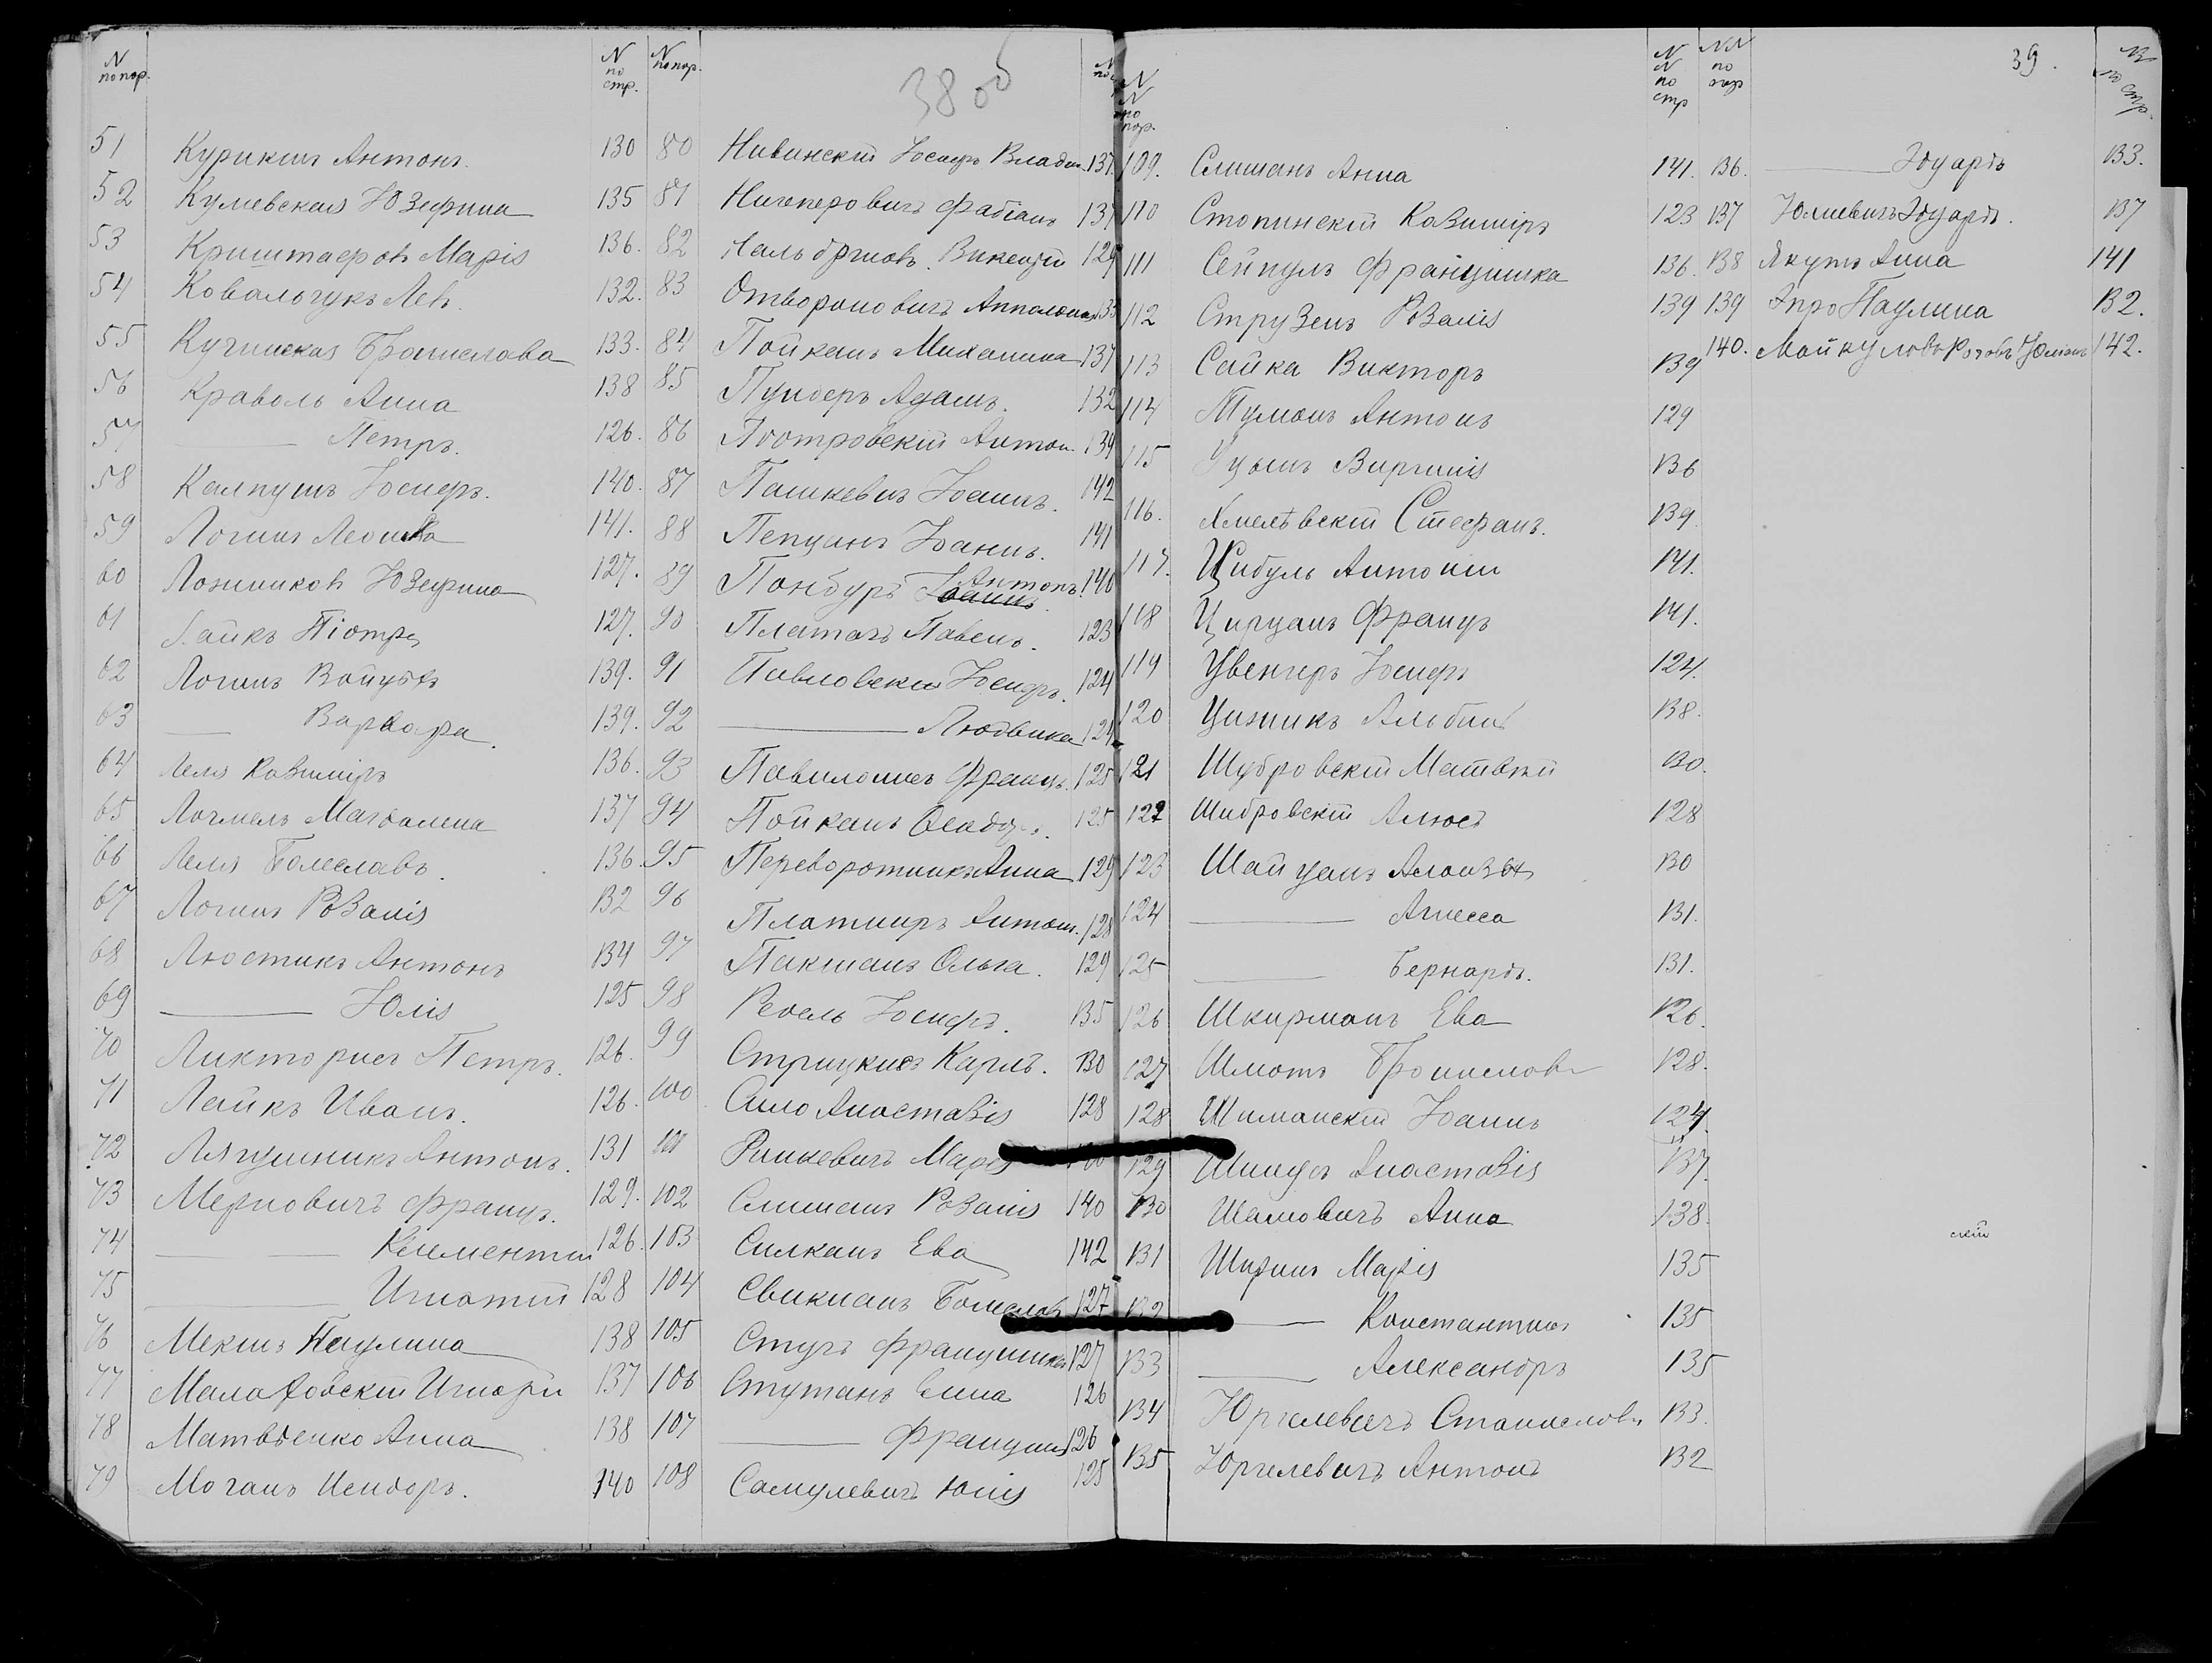 N по пор.
N по стр.
N по пор.
38 об
N по
N N по пор.
N N по стр
NN по пор
39.
N по стр.
51 Курикинъ Антонъ. 130
52 Кулевская Юзефина 135
53 Криштафовъ Марія 136.
54 Ковальчукъ Левъ. 132.
55 Кучинская Брониslава 133.
56 Краволь Анна 138
57 — Петръ. 126.
58 Калпушъ Іосифъ. 140.
59 Логинъ Леонка 141.
60 Ложниковъ Юзефина 127.
61 Лайкъ Піотръ 127.
62 Логинъ Войцѣхъ 139.
63 — Варвара. 139.
64 Леля Казиміръ 136.
65 Логмель Магдалена 137
66 Леля Болеславъ. 136.
67 Логинъ Розалія 132
68 Люстикъ Антонъ 134
69 — Юлія 125
70 Ликторисъ Петръ. 126.
71 Лейкъ Иванъ. 126.
72 Лягушникъ Антонъ. 131
73 Мерновичъ Францъ. 129.
74 — Климентій 126.
75 — Игнатій 128
76 Мекшъ Паулина 138
77 Малаховскій Игнатій 137
78 Матвѣенко Анна 138
79 Моганъ Исидоръ. 140
80 Нивинскій Іосифъ Влади. 137.
81 Ничипоровичъ Фабіанъ 137
82 Викентій 129
83 Отвориновичъ Апполонія
84 Пойканъ Михалина 137
85 Пундеръ Адамъ. 132
86 Піотровскій Антон. 134
87 Пашкевичъ Іоаннъ. 142
88 Пепцанъ Іоаннъ. 141
89 Пондуръ Антонъ. 140
90 Платачъ Павелъ. 123
91 Павловскій Іосифъ. 124
92 — Людвика 124
93 Павиломсъ Францъ. 125
94 Пойканъ 125
95 Переворотникъ Анна 129
96 Платниръ Антон. 128
97 Пакшанъ Ольга. 129
98 Рефель Іосифъ. 135
99 Стрицкисъ Карлъ. 130
100 Сило Анастазія 128
101 Римкевичъ Марія
102 Слишанъ Розалія 140
103 Силканъ Ева 142
104 Свикшанъ Болеславъ 127
105 Стучъ Францишка 127
106 Стутанъ Елена 126
107 — Францишк 126
108 Самулевичъ Юлія 125
109. Слишанъ Анна 141.
110 Стопинскій Казиміръ 123
111 Сейпулъ Францишка 136.
112 Струзенъ Розалія 139
113 Сайка Викторъ 139
114 Туманъ Антонъ 129
115 Виргинія 136
116. Хмелѣвскій Стефанъ. 139.
117. Цибуль Антоній 141.
118 Цируанъ Францъ 141.
119 Цвенгеръ Іосифъ 124.
120 Цижикъ Альбин 138.
121 Щубровскій Матвѣй 130.
122 Шибровскій Алюсъ 128
123 Шайцанъ Алоизъ 130
124 — Агнесса 131.
125 — Бернардъ. 131.
126 Шкирманъ Ева 126.
127 Шмотъ Брониславъ 128.
128 Шиманскій Іоаннъ 124.
129 Шинусъ Анастазія 137.
130 Шамовичъ Анна 138.
131 Ширинъ Марія 135
132 — Константинъ 135
133 — Александръ 135
134 Юргелевичъ Станиславъ 133.
135 Юргелевичъ Антонъ 132
136. — Эдуардъ 133.
137 Юлиевичъ Эдуардъ. 137
138 Якутъ Анна 141
139 Паулина 132.
140. Юліанъ 142.